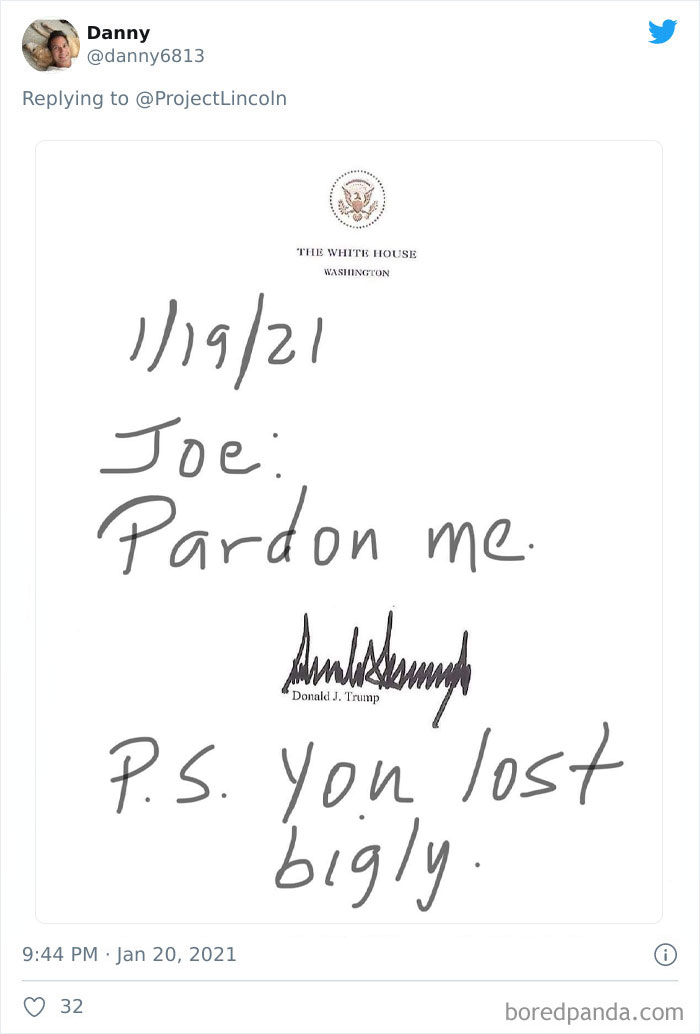 Danny
@danny6813
Replying to @ProjectLincoln
THE WHITE HOUSE
WASHINGTON
1/19/21
Joe:
Pardon me.
Donald J. Trump
P.S. You lost
bigly.
9:44 PM · Jan 20, 2021
32
boredpanda.com